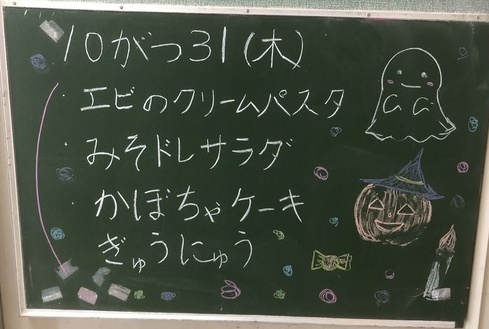 10がつ31(木)
・エビのクリームパスタ
・みそドレサラダ
・かぼちゃケーキ
ぎゅうにゅう